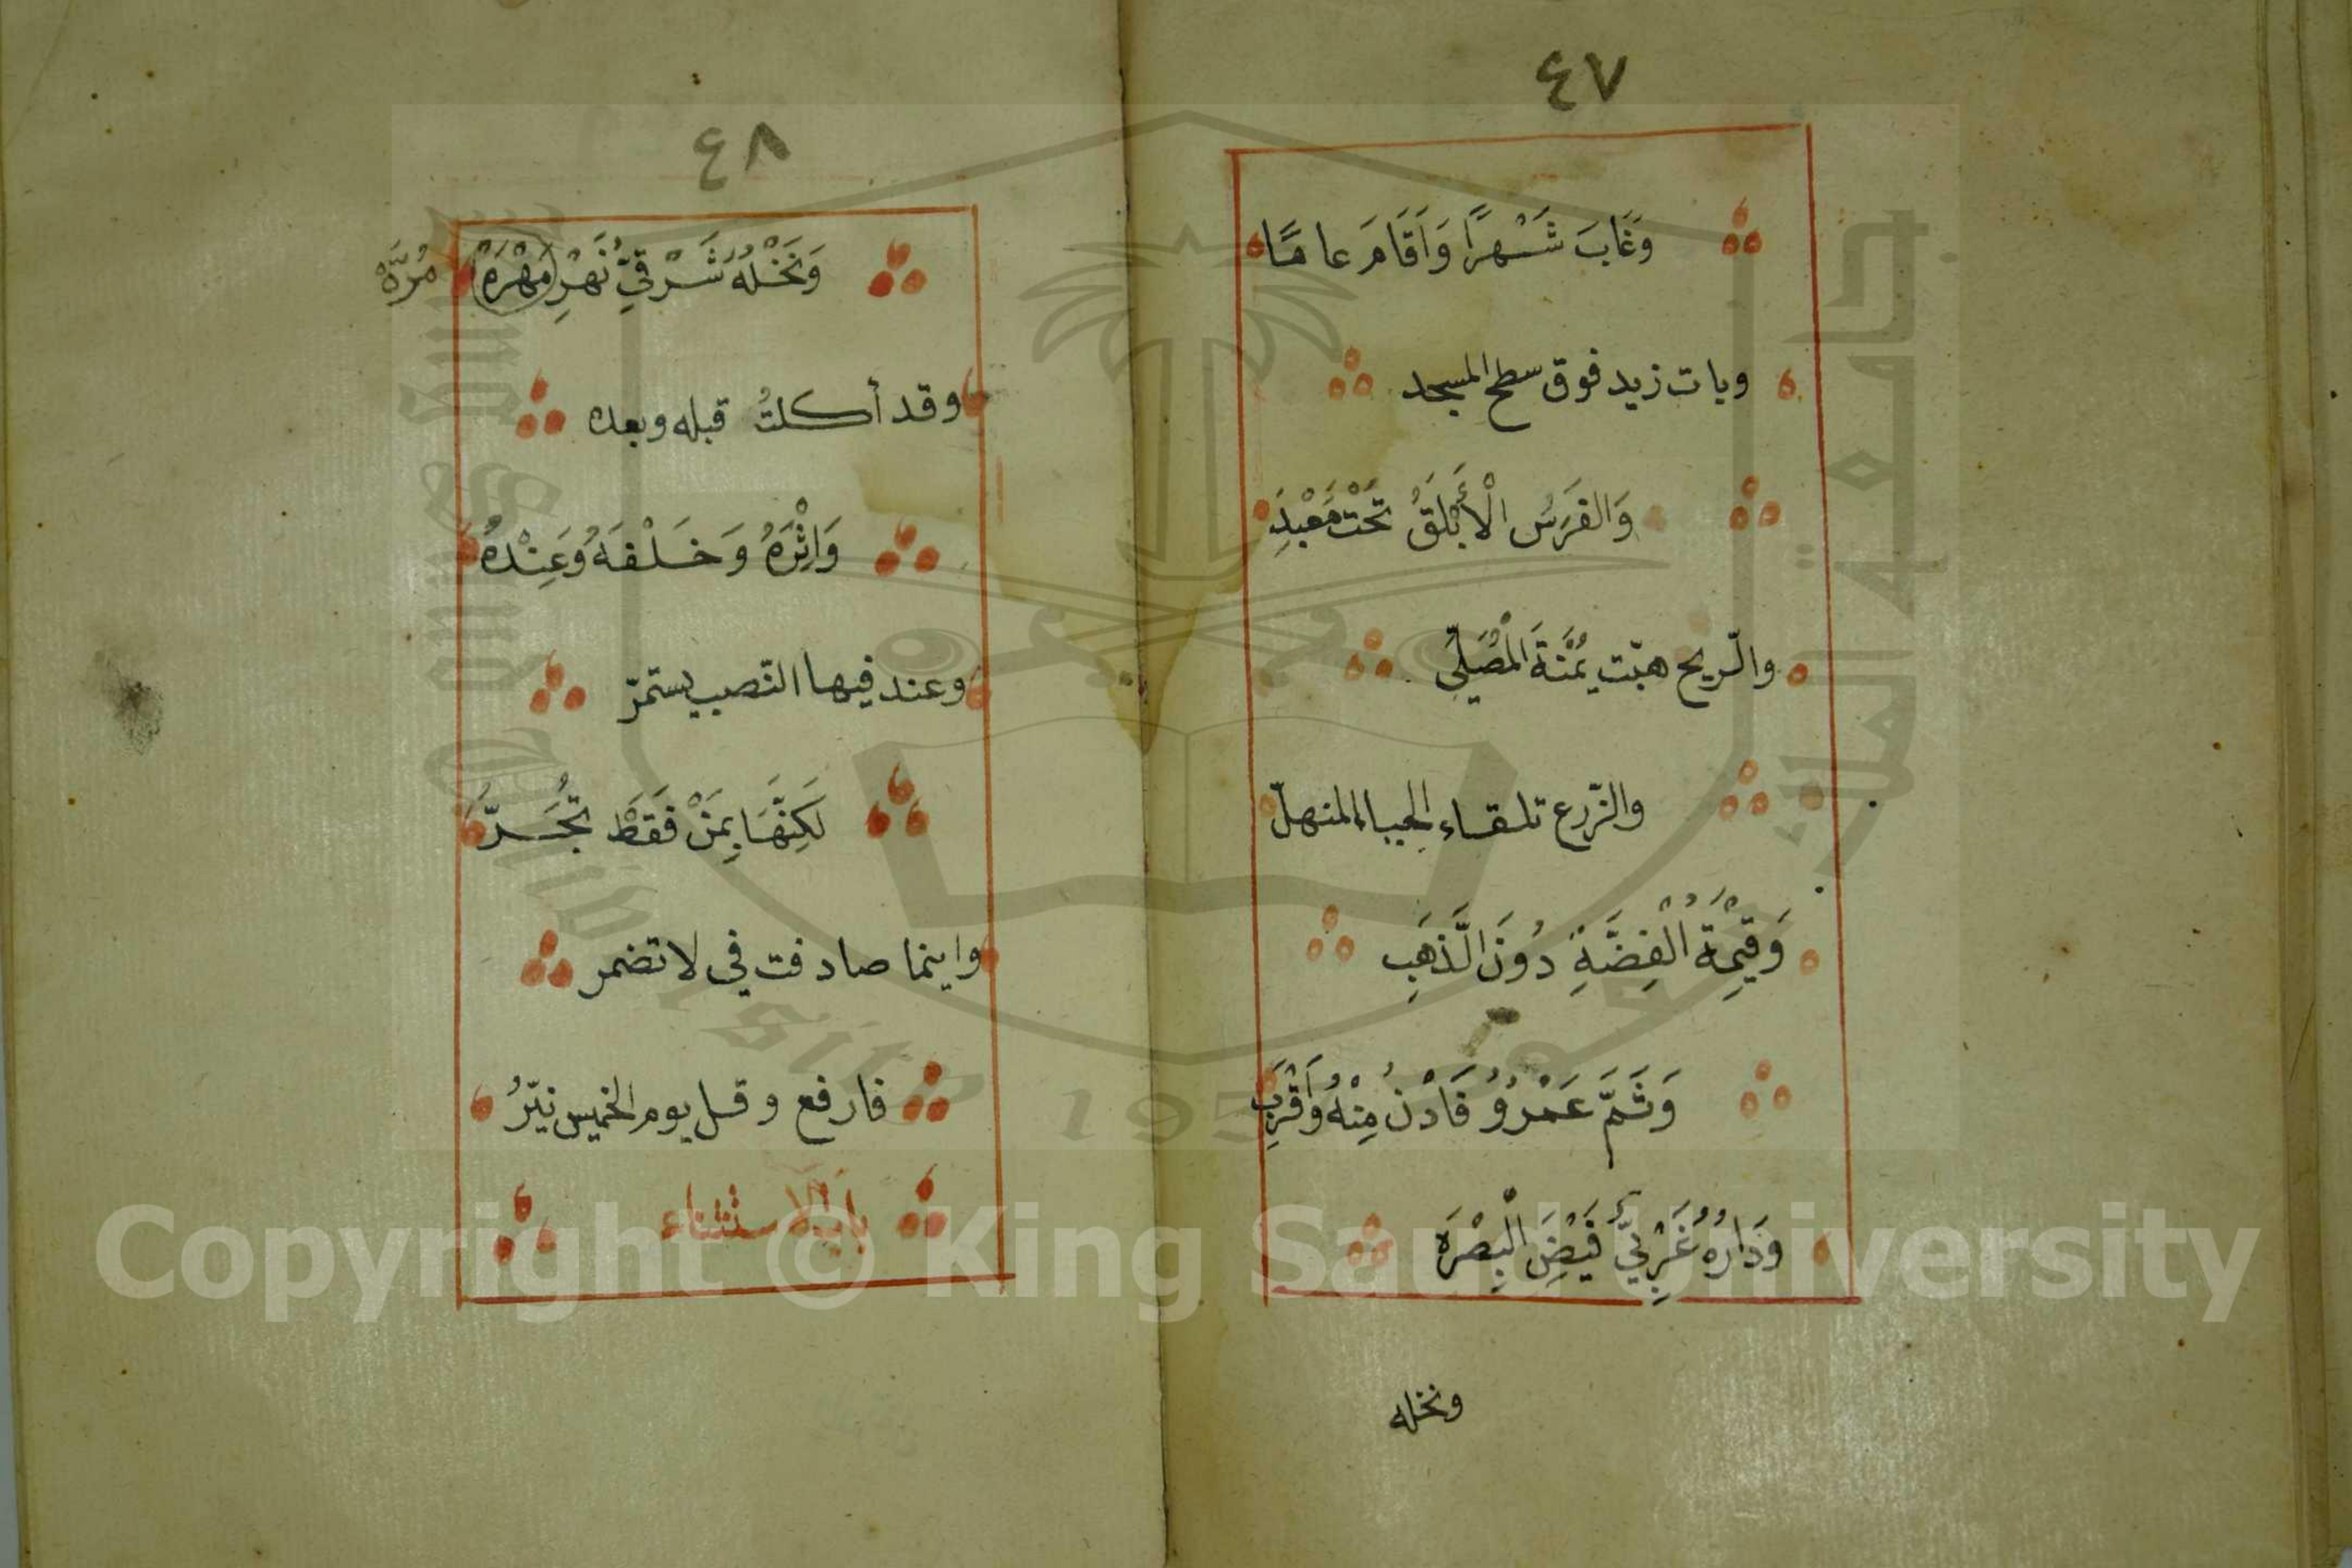 ٤٧
وَغَابَ شَهْرًا وَاَقَامَ عامًا
وبات زيد فوق سطح المسجد
وَالفَرَسُ الْأَبْلَقُ تَحْتَ مَعْبَدِ
والرّيح هبّت يُمْنَةَ الْمُصَلِّي
والزّرع تلقاء الحيا المنهلّ
وَقِيْمَةُ الْفِضَّةِ دُوْنَ الَّذهَبِ
وَثَمَّ عَمْرُوُ فَادْنُ مِنْهُ وَاقْرَبِ
وَدَارُهُ غَرْبِيَّ فَيْضِ الْبِصْرَه
ونخله
٤٨
وَنَخْلُهُ شَرْقِيَّ نَهْرِ مَهْرَهْ مُرَّهْ
وقد أكلتُ قبله وبعده
وَاِثْرَهُ وَخَلْفَهُ وَعِنْدَهُ
وعند فيها النّصب يستمرّ
لَكِنَّهَا بِمَنْ فَقَطْ تُجَرُّ
واينما صادفت في لا تضمر
فارفع وقل يوم الخميس نيّرُ
باب الاستثناء
Copyright © King Saud University